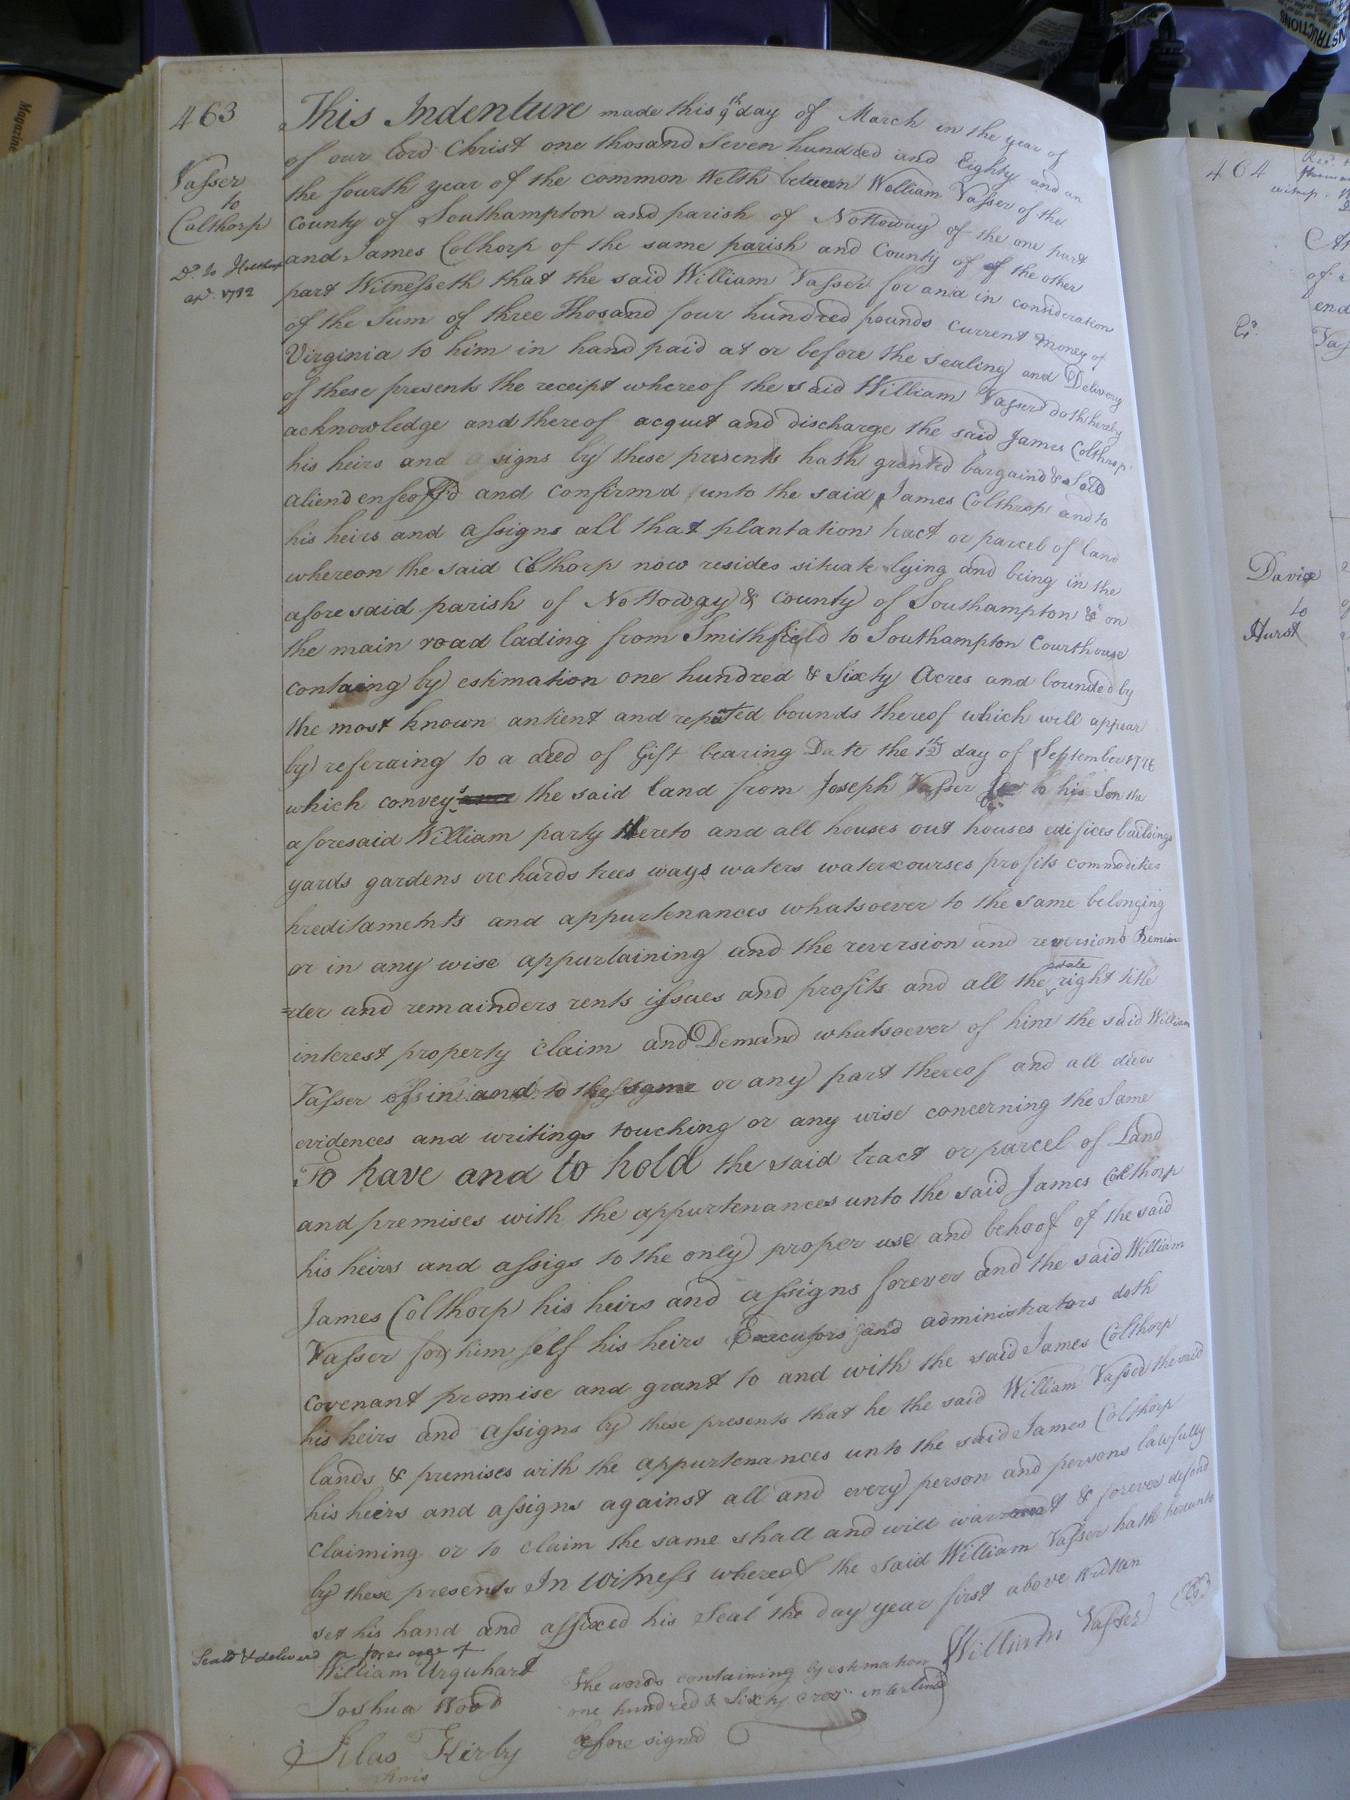 463
Vasser
to
Calthorp
Dd. to
apl. 1782
This Indenture made this 9th day of March in the year of
of our lord Christ one thosand Seven hundred and Eighty and an
the fourth year of the common Welth between William Vasser of the
County of Southampton and parish of Nottoway of the one part
and James Colthorp of the same parish and County of of the other
part Witnesseth that the said William Vasser for and in consideration
of the Sum of three thosand four hundred pounds current money of
Virginia to him in hand paid at or before the sealing and Delivery
of these presents the receipt whereof the said William Vasser doth hereby
acknowledge and thereof acquit and discharge the said James Colthrop
his heirs and asigns by these presents hath granted bargaind & Sold
aliend enfeoff'd and confirmd unto the said James Colthrop and to
his heirs and assigns all that plantation tract or parcel of land
whereon the said Clthorp now resides situate lying and being in the
afore said parish of Nottoway & county of Southampton & on
the main road lading from Smithfield to Southampton Courthouse
containg by estimation one hundred & Sixty Acres and bounded by
the most known antient and reputed bounds thereof which will appear
by referring to a deed of Gift bearing Date the 12th day of September 1778
which conveys the said land from Joseph Vasser to his Son the
aforesaid William party Hereto and all houses out houses edifices buildings
yards gardens orchards trees ways waters watercourses profits commodities
hreditaments and appurtenances whatsoever to the same belonging
or in any wise appurtaining and the reversion and reversions Remain
=der and remainders rents issues and profits and all the estate right title
interest property claim and Demand whatsoever of him the said William
Vasser of in and to the same or any part thereof and all deeds
evidences and writings touching or any wise concerning the Same
To have and to hold the said tract or parcel of Land
and premises with the appurtenances unto the said James Colthorp
his heirs and assigs to the only proper use and behoof of the said
James Colthorp his heirs and assigns forever and the said William
Vasser for him self his heirs Executors and administrators doth
covenant promise and grant to and with the said James Colthorp
his heirs and assigns by these presents that he the said William Vasser the said
lands & premises with the appurtenances unto the said James Colthorp
his heirs and assigns against all and every person and persons lawfully
claiming or to claim the same shall and will warrant & forever defend
by these presents In Witness whereof the said William Vasser hath hereunto
set his hand and affixed his Seal the day year first above written
Seald & delivered in presence of
William Vasser
William Urquhart
Joshua Wood
Silas Kirby
The words containing by estimation
one hundred & Sixty acres interlined
before signed
464
Davis
to
Hurst